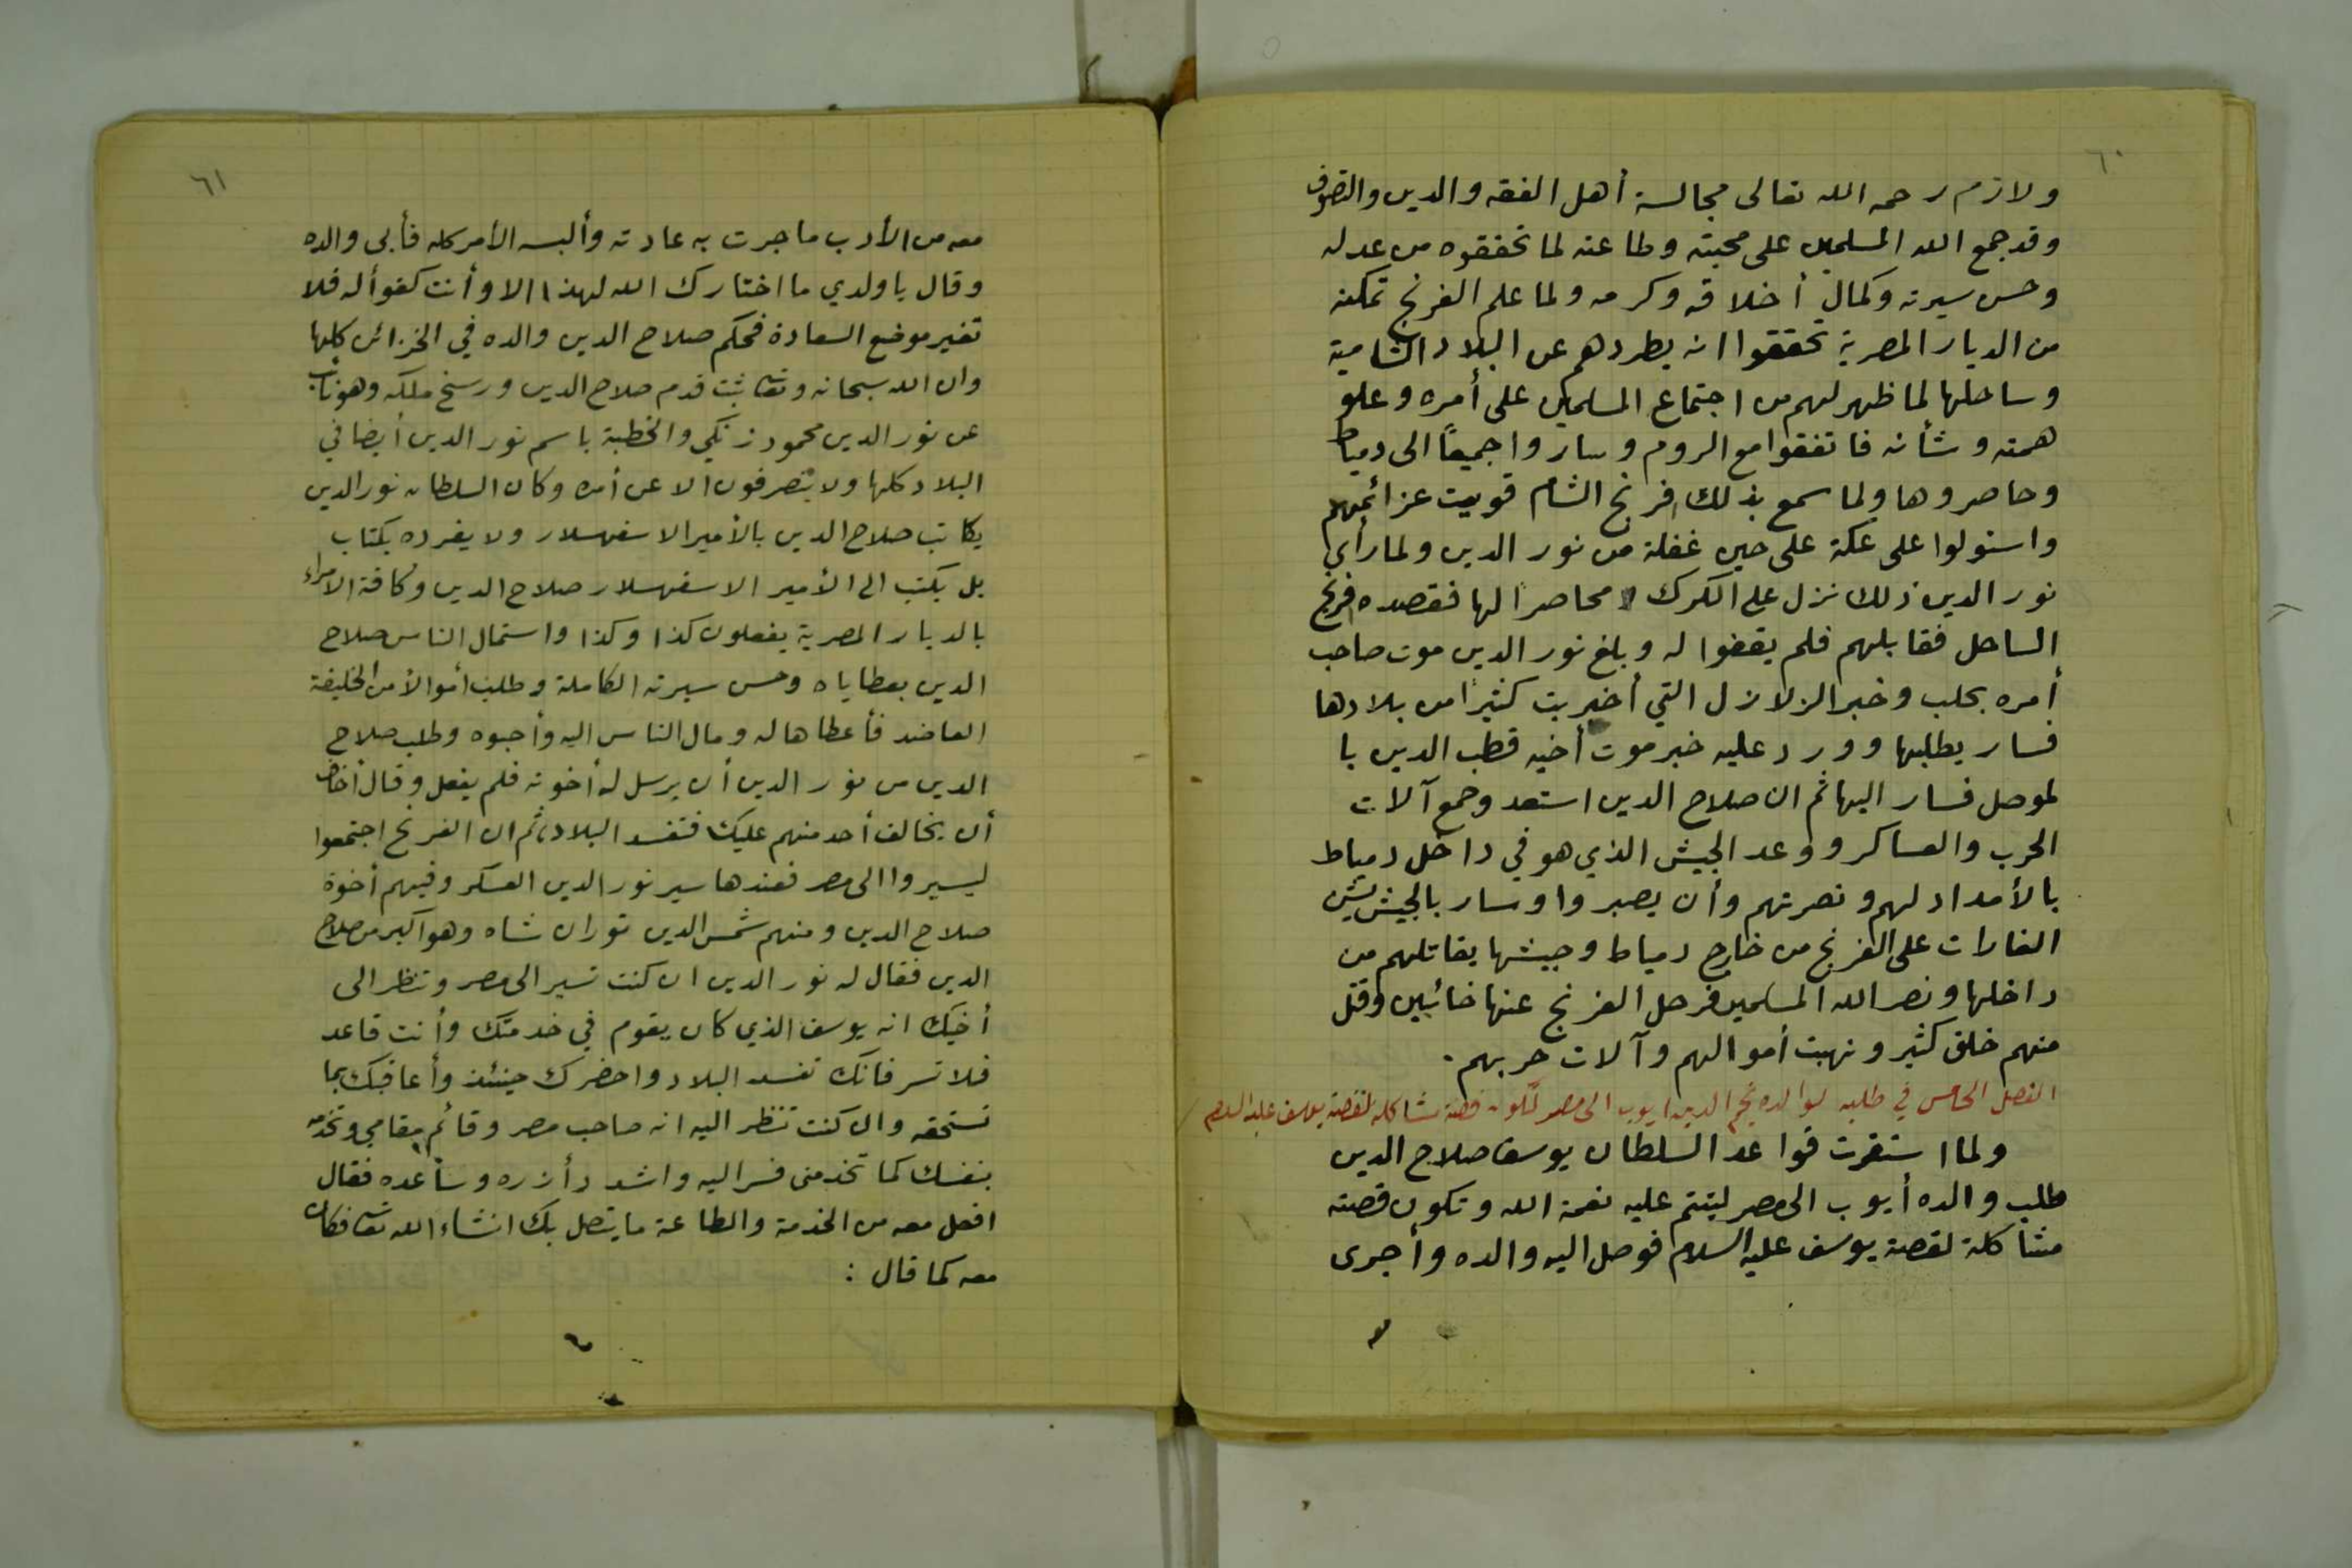 ٦٠
ولازم رحمه الله تعالى مجالسة أهل الفقه والدين والتصوف
وقد جمع الله المسلمين على محبته وطاعته لما تحققوه من عدله
وحسن سيرته وكمال أخلاقه وكرمه ولما علم الفرنج تمكنه
من الديار المصرية تحققوا انه يطردهم عن البلاد الشامية
وساحلها لما ظهر لهم من اجتماع المسلمين على أمره وعلو
همته وشأنه فاتفقوا مع الروم وساروا جميعًا الى دمياط
وحاصروها ولما سمع بذلك فرنج الشام قويت عزائمهم
واستولوا على عكة على حين غفلة من نور الدين ولما رأى
نور الدين ذلك نزل على الكرك محاصرًا لها فقصده فرنج
الساحل فقابلهم فلم يقفوا له وبلغ نور الدين موت صاحب
أمره بحلب وخبر الزلازل التي أخربت كثيرًا من بلادها
فسار يطلبها وورد عليه خبر موت أخيه قطب الدين با
لموصل فسار اليها ثم ان صلاح الدين استعد وجمع آلات
الحرب والعساكر ووعد الجيش الذي هو في داخل دمياط
بالأمداد لهم ونصرتهم وأن يصبروا وسار بالجيش يشن
الغارات على الفرنج من خارج دمياط وجيشها يقاتلهم من
داخلها ونصر الله المسلمين فرحل الفرنج عنها خائبين وقتل
منهم خلق كثير ونهبت أموالهم وآلات حربهم .
الفصل الخامس في طلبه لوالده نجم الدين ايوب الى مصر لتكون قصته مشاكله لقصة يوسف عليه السلام
ولما استقرت قواعد السلطان يوسف صلاح الدين
طلب والده أيوب الى مصر ليتم عليه نعمة الله وتكون قصته
مشاكلة لقصة يوسف عليه السلام فوصل اليه والده وأجرى
٦١
معه من الأدب ما جرت به عادته وألبسه الأمر كله فأبى والده
وقال يا ولدي ما اختارك الله لهذا الا وأنت كفوأ له فلا
تغير موضع السعادة فحكم صلاح الدين والده في الخزائن كلها
وان الله سبحانه وتعا ثبت قدم صلاح الدين ورسخ ملكه وهو نائب
عن نور الدين محمود زنكي والخطبة باسم نور الدين أيضا في
البلاد كلها ولا يتصرفون الا عن أمره وكان السلطان نور الدين
يكاتب صلاح الدين بالأمير الاسفهسلار ولا يفرده بكتاب
بل يكتب الى الأمير الاسفهسلار صلاح الدين وكافة الامراء
بالديار المصرية يفعلون كذا وكذا واستمال الناس صلاح
الدين بعطاياه وحسن سيرته الكاملة وطلب أموالأ من الخليفة
العاضد فأعطاها له ومال الناس اليه وأحبوه وطلب صلاح
الدين من نور الدين أن يرسل له أخوته فلم يفعل وقال أخاف
أن يخالف أحد منهم عليك فتفسد البلاد، ثم ان الفرنج اجتمعوا
ليسيروا الى مصر فعندها سير نور الدين العسكر وفيهم أخوة
صلاح الدين ومنهم شمس الدين توران شاه وهو اكبر من صلاح
الدين فقال له نور الدين ان كنت تسير الى مصر وتنظر الى
أخيك انه يوسف الذي كان يقوم في خدمتك وأنت قاعد
فلا تسر فانك تفسد البلاد واحضرك حينئذ وأعاقبك بما
تستحقه وان كنت تنظر اليه انه صاحب مصر وقائم مقامي وتخدمه
بنفسك كما تخدمني فسر اليه واشدد أزره وساعده فقال
افعل معه من الخدمة والطاعة ما يتصل بك انشاء الله تعا فكان
معه كما قال :